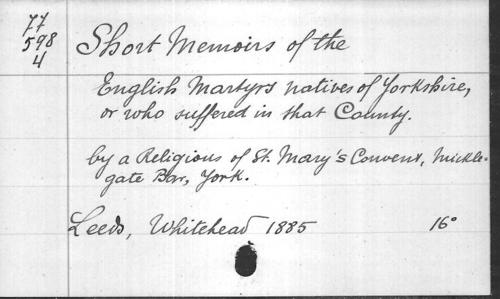 77
598
4
Short Memoirs of the
English Martyrs natives of Yorkshire,
or who suffered in that County.
by a Religious of St. Mary's Convent, Mickle-
gate Bar, York.
Leeds, Whitehead 1885 16°